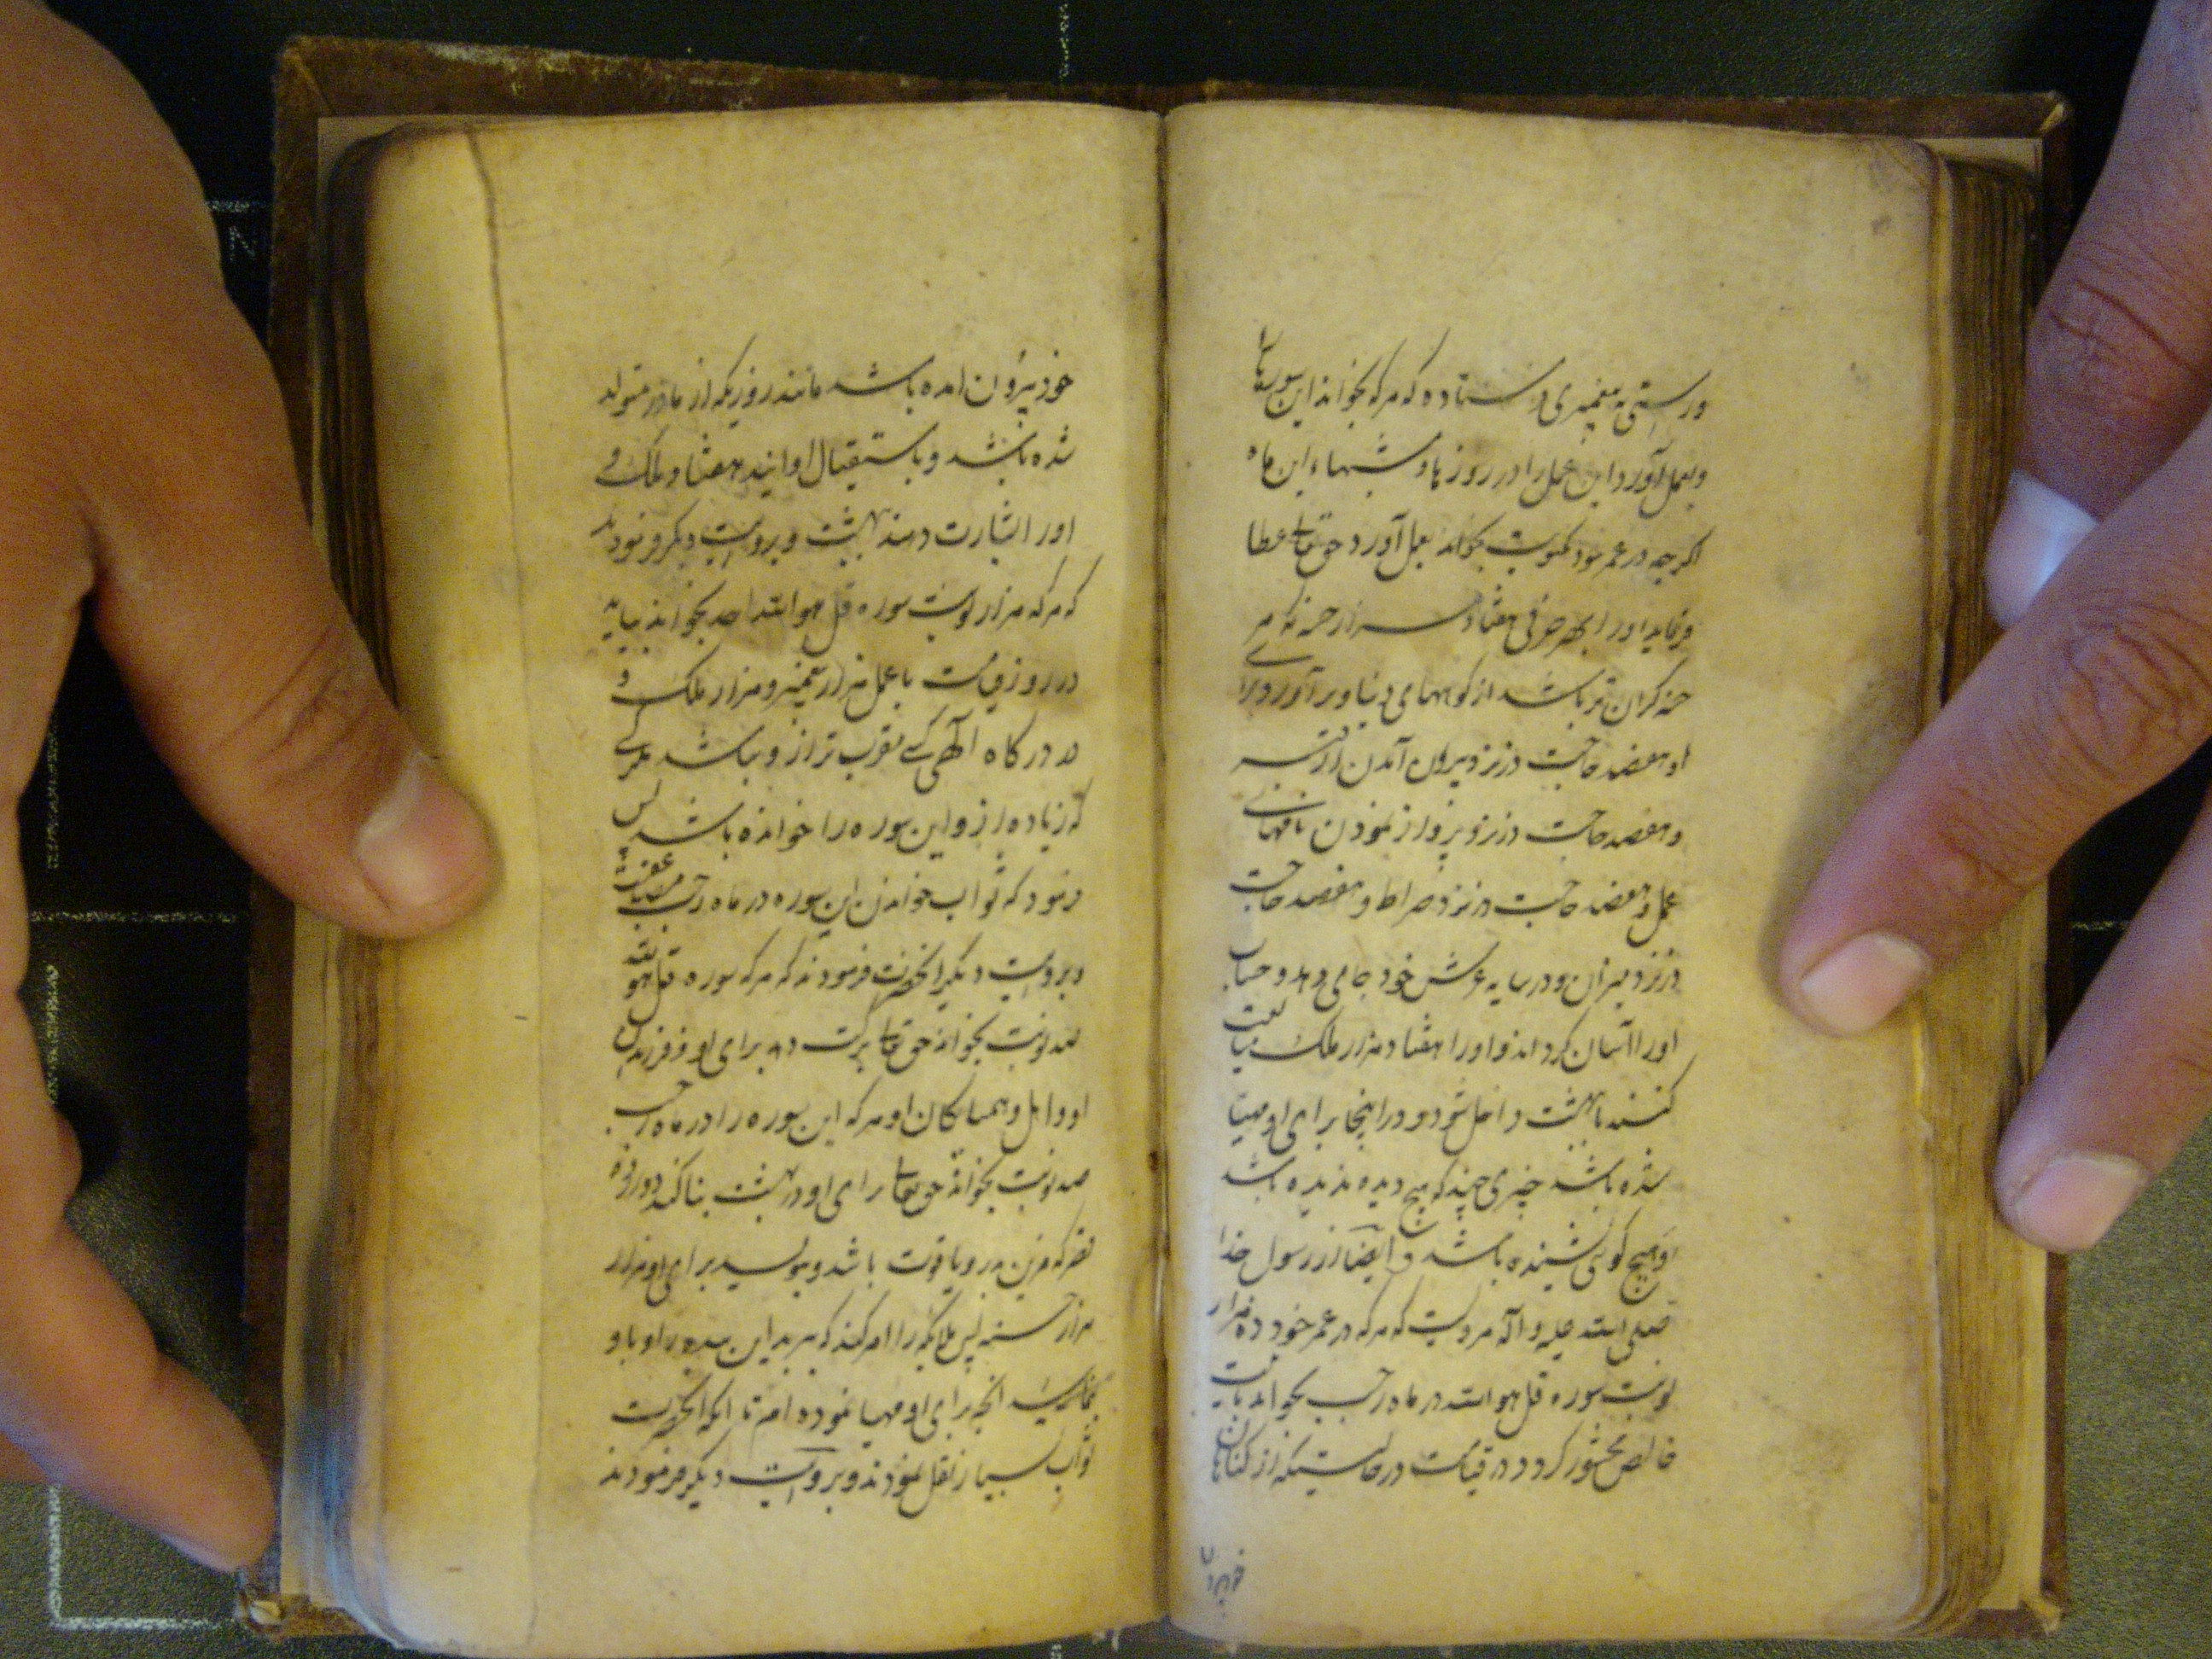 وراستی به پیغمبری فرستاده که هرکه بخواند این سورها
وبعمل آورد این عمل را در روزها و شبهاء این ماه
اگرچه در عمر خود یکنوبت بخواند بعمل آورد حق تعالی عطا
فرماید او را بهر حرفی هفتاد هزار حسنه که هر
حسنه گران تر باشد از کوههای دنیا و برآورد برای
او هفصد حاجت در نزد بیرون آمدن از قبر
و هفصد حاجت در نزد پرواز نمودن نامهای
عمل و هفصد حاجت در نزد صراط و هفصد حاجت
در نزد میزان و در سایه عرش خود جای دهد و حساب
او را آسان گرداند و او را هفتاد هزار ملک مشایعت
کنند تا بهشت داخل شود و در اینجا برای او مهیا
شده باشد چیزی چند که هیچ دیده ندیده باشد
و هیچ گوش نشنیده باشد و ایضا از رسول خدا
صلی الله علیه و آله مرویست که هرکه در عمر خود ده هزار
نوبت سوره قل هو الله در ماه رجب بخواند بانیت
خالص محشور گردد در قیامت در حالتیکه از گناهان
خود بیرون
خود بیرون امده باشد مانند روزیکه از مادر متولد
شده باشد و باستقبال او ایند هفتاد ملک و
او را بشارت دهند بهشت و بروایت دیگر فرمودند
که هرکه هزار نوبت سوره قل هو الله احد بخواند بیاید
در روز قیامت با عمل هزار پیغمبر و هزار ملک و
در درگاه آلهی کسی مقرب تر از و نباشد مگر کسی
که زیاده از و این سوره را خوانده باشد پس
فرمود که ثواب خواندن این سوره در ماه رجب مضاعفست
و بروایت دیگر انحضرت فرمودند که هرکه سوره قل هو الله
صد نوبت بخواند حق تعالی برکت دهد برای او و فرزندان
او و اهل و همسایگان او و هرکه این سوره را در ماه رجب
صد نوبت بخواند حق تعالی برای او در بهشت بنا کند دوازده
قصر که مزین بدر و یاقوت باشد و بنویسد برای او هزار
هزار حسنه پس ملائکه را امر کند که ببرید این بنده را و باو
بنمائید انچه برای او مهیا نموده ام تا انکه انحضرت
ثواب بسیار نقل نمودند و بروایت دیگر فرمودند